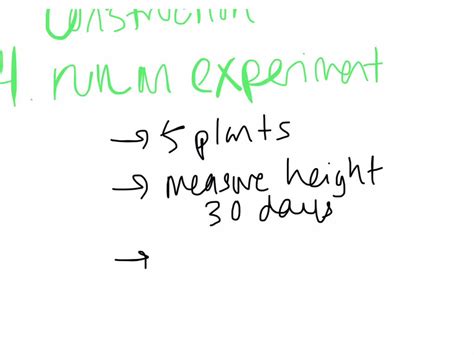 construction
4. run an experiment
→ 5 plants
→ measure height
30 days
→